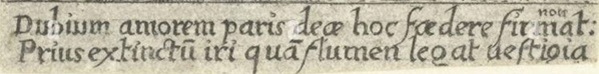 Dubium amorem paris deæ hoc fædere firmat:
non
Prius extinctū iri quā flumen legat uestigia